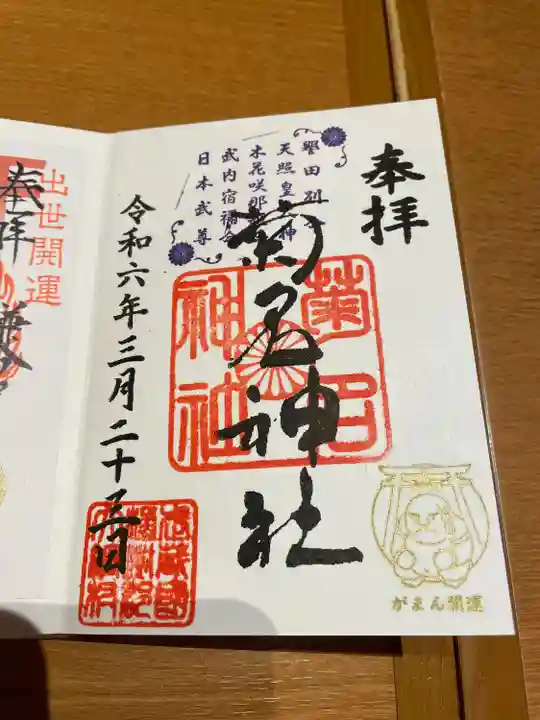 奉拝
誉田別
天照皇
神
木花咲那
武内宿禰命
日本武尊
菊名神社
菊名
神社
令和六年三月二十三日
武蔵国
がまん開運
奉拝
出世開運